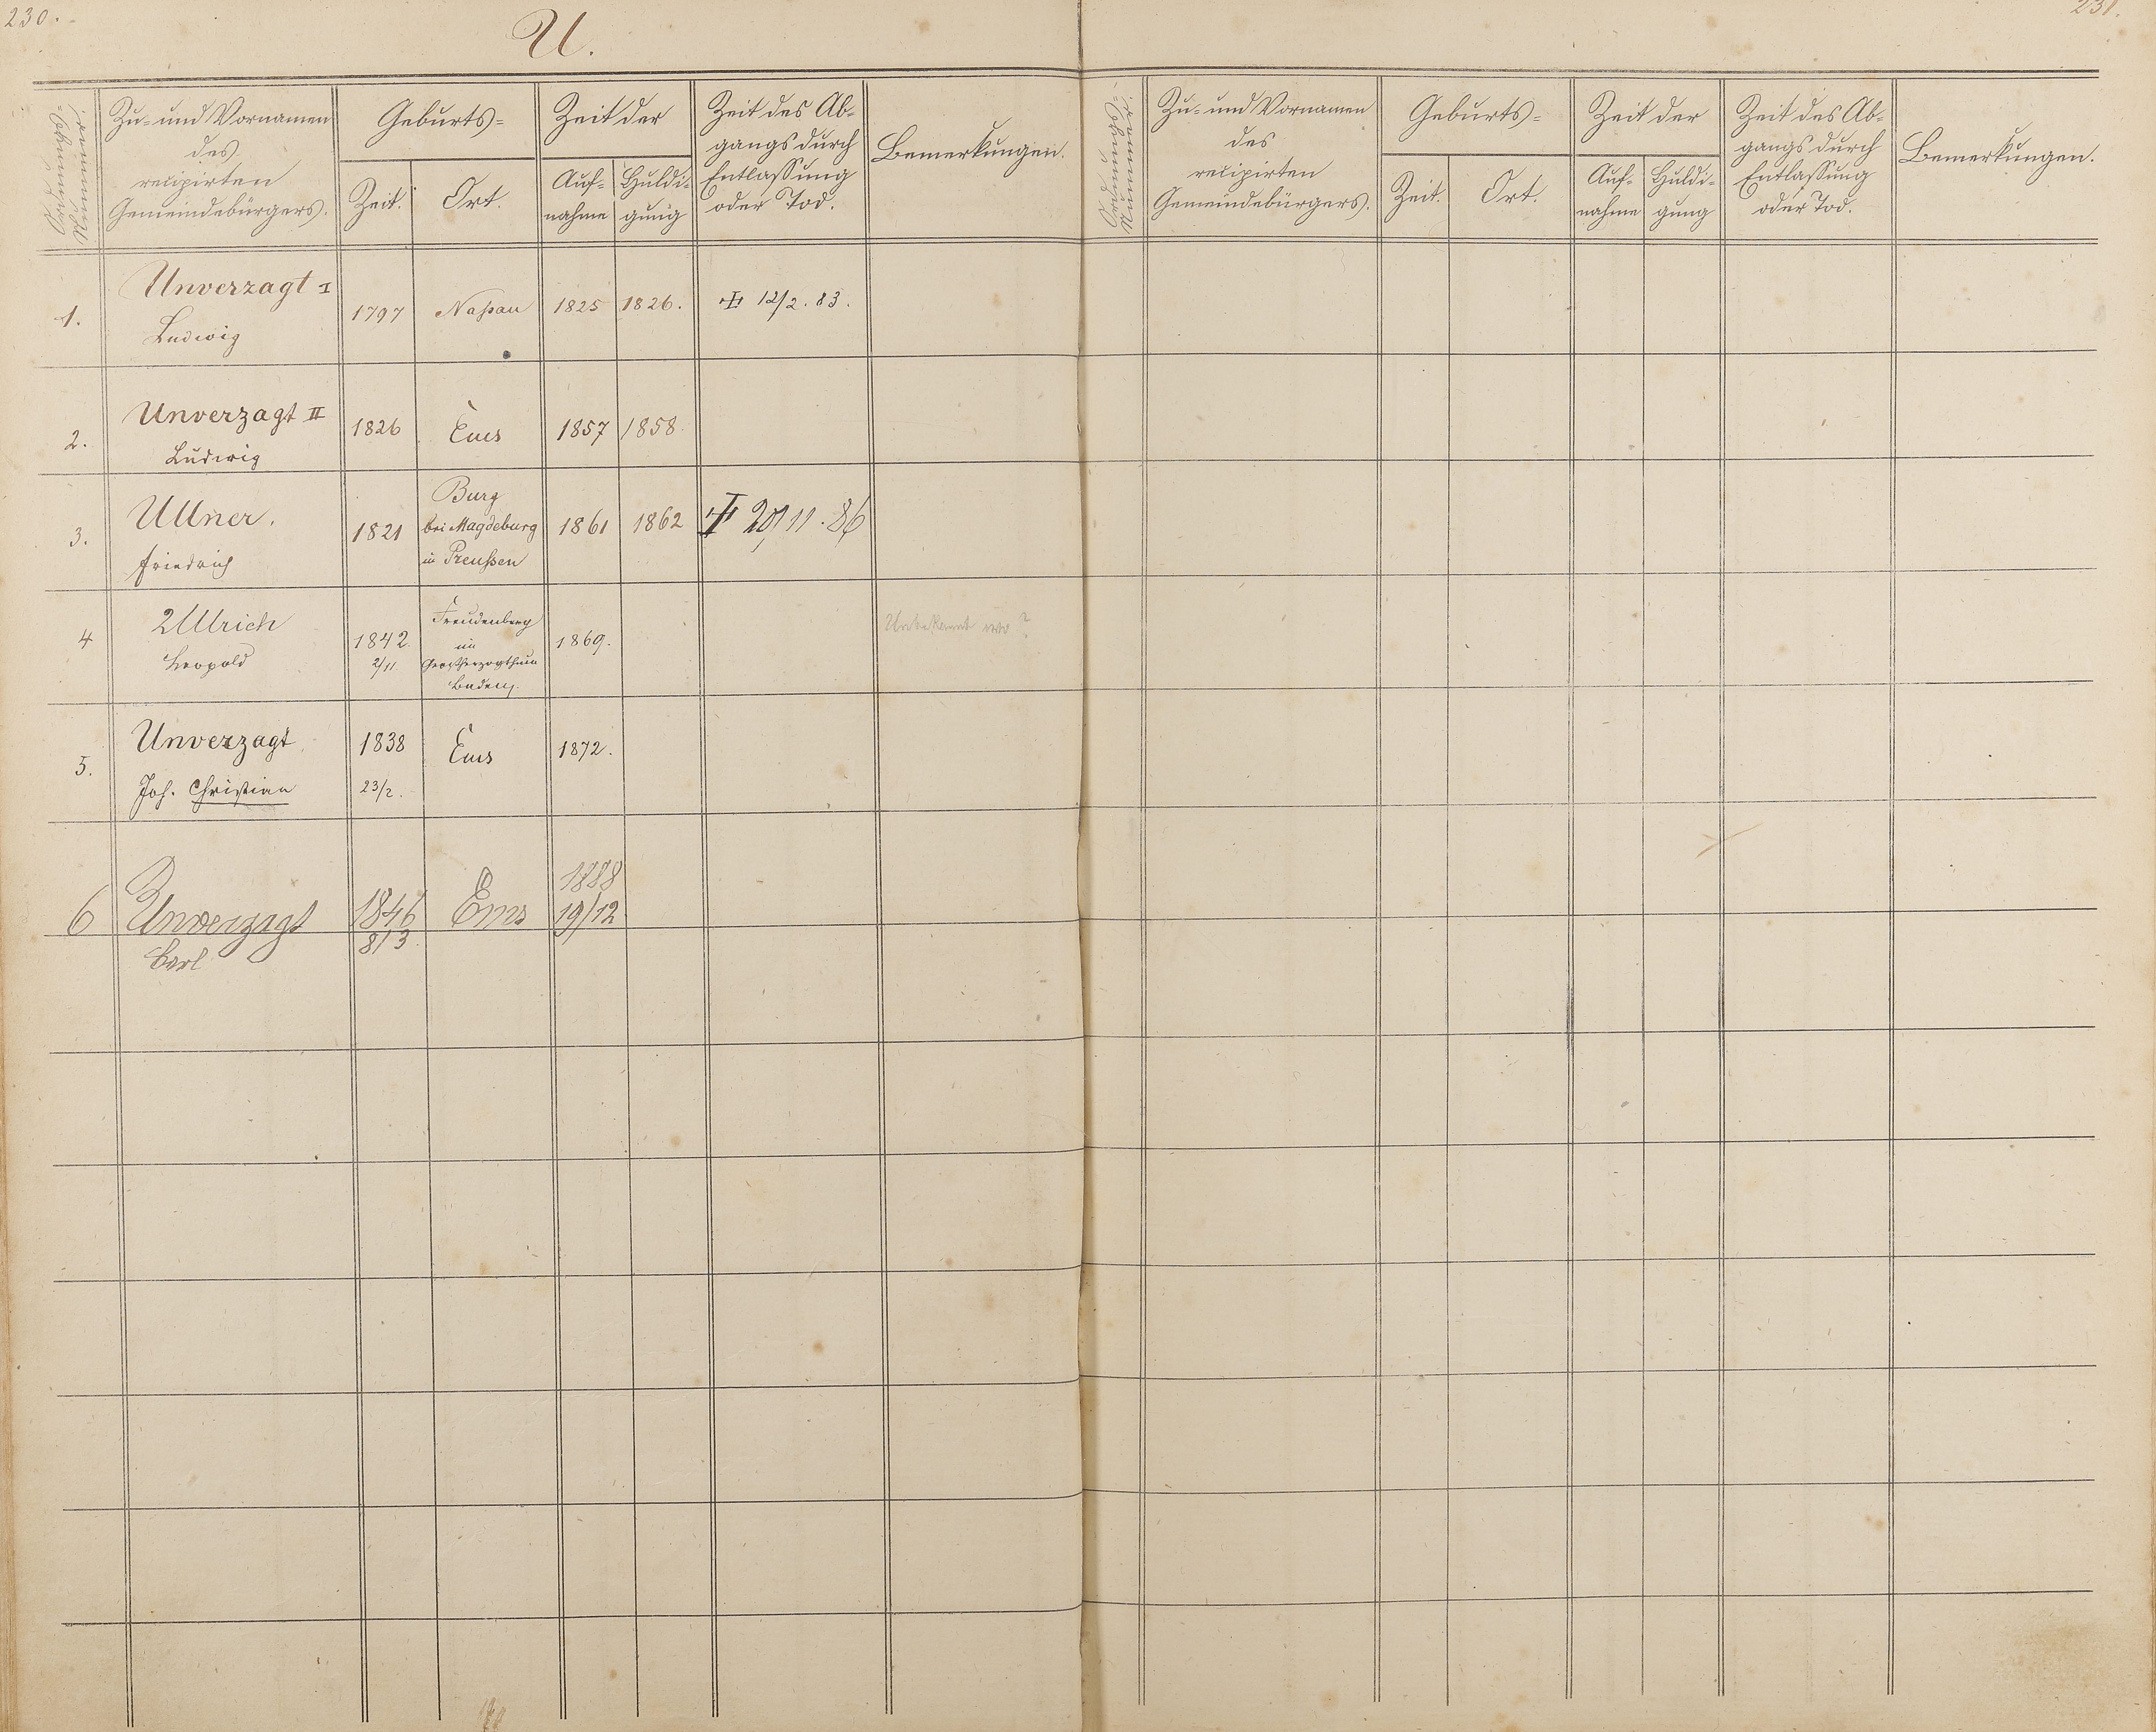 230.
U.
Ordnungs-
Nummer.
Zu- und Vornamen
des
recipirten
Gemeindebürgers.
Geburts-
Zeit.
Ort.
Zeit der
Auf-
nahme
Huldi-
gung
Zeit des Ab-
gangs durch
Entlassung
oder Tod.
Bemerkungen.
1.
Unverzagt I
Ludwig
1797
Naßau
1825
1826.
12/2. 83.
2.
Unverzagt II
Ludwig
1826
Ems
1857
1858.
3.
Ullner.
Friedrich
1821
Burg
bei Magdeburg
in Preußen
1861
1862
11. 86
4
Ullrich
Leopold
1842.
2/11
Freudenberg
im
Großherzogthum
Baden.
1869.
Unbekannt wo?
5.
Unverzagt
Joh. Christian
1838
23/2.
Ems
1872.
6
Unverzagt
Carl
1846
8/3
Ems
1888
19/12
231.
Ordnungs-
Nummer.
Zu- und Vornamen
des
recipirten
Gemeindebürgers.
Geburts-
Zeit.
Ort.
Zeit der
Auf-
nahme
Huldi-
gung
Zeit des Ab-
gangs durch
Entlassung
oder Tod.
Bemerkungen.